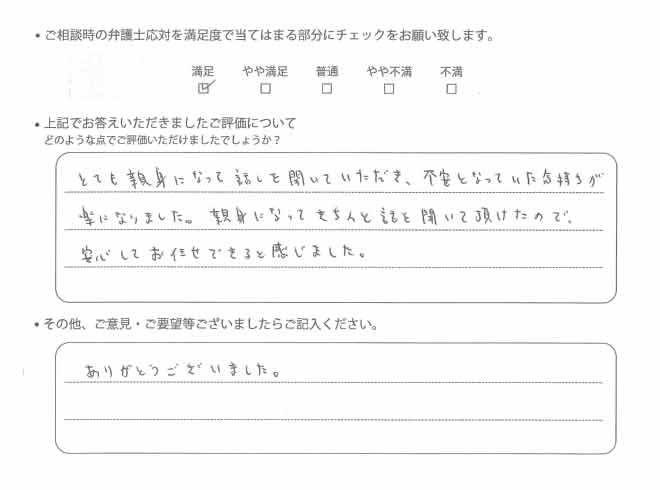 • ご相談時の弁護士応対を満足度で当てはまる部分にチェックをお願い致します。
満足 やや満足 普通 やや不満 不満
☑ □ □ □ □
• 上記でお答えいただきましたご評価について
どのような点でご評価いただけましたでしょうか？
とても親身になって話しを聞いていただき、不安となっていた気持ちが
楽になりました。親身になってきちんと話を聞いて頂けたので、
安心してお任せできると感じました。
• その他、ご意見・ご要望等ございましたらご記入ください。
ありがとうございました。